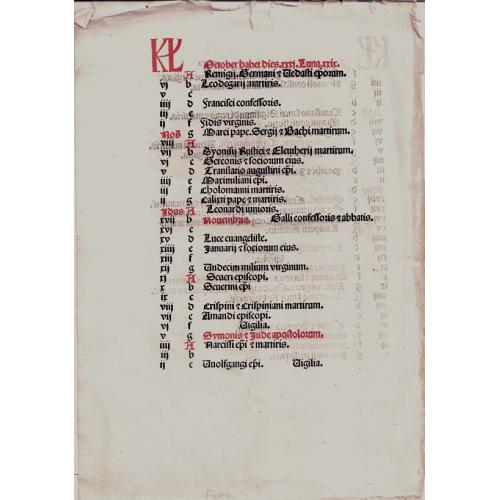 KL October habet dies.xxxj.Luna.xxix.
A Remigij. Germani ⁊ Vedasti ep̄orum.
vj b Leodegarij martiris.
v c
iiij d Francisci confessoris.
iij e
ij f Fidis virginis.
Noñ g Marci pape. Sergij ⁊ Bachi martirum.
viij A
vij b Dyonisij Rustici ⁊ Eleutherij martirum.
vj c Gereonis ⁊ sociorum eius.
v d Translatio augustini ep̄i.
iiij e Maximiliani ep̄i.
iij f Cholomanni martiris.
ij g Calixti pape ⁊ martiris.
Idus A Leonardi iunioris.
xvij b Nouembris. Galli confessoris ⁊ abbatis.
xvj c
xv d Luce euangeliste.
xiiij e Januarij ⁊ sociorum eius.
xiij f
xij g Undecim milium virginum.
xj A Seueri episcopi.
x b Seuerini ep̄i
ix c
viij d Crispini ⁊ Crispiniani martirum.
vij e Amandi episcopi.
vj f Vigilia.
v g Symonis ⁊ Jude apostolorum.
iiij A Narcissi ep̄i ⁊ martiris.
iij b
ij c Wolfgangi ep̄i. Vigilia.